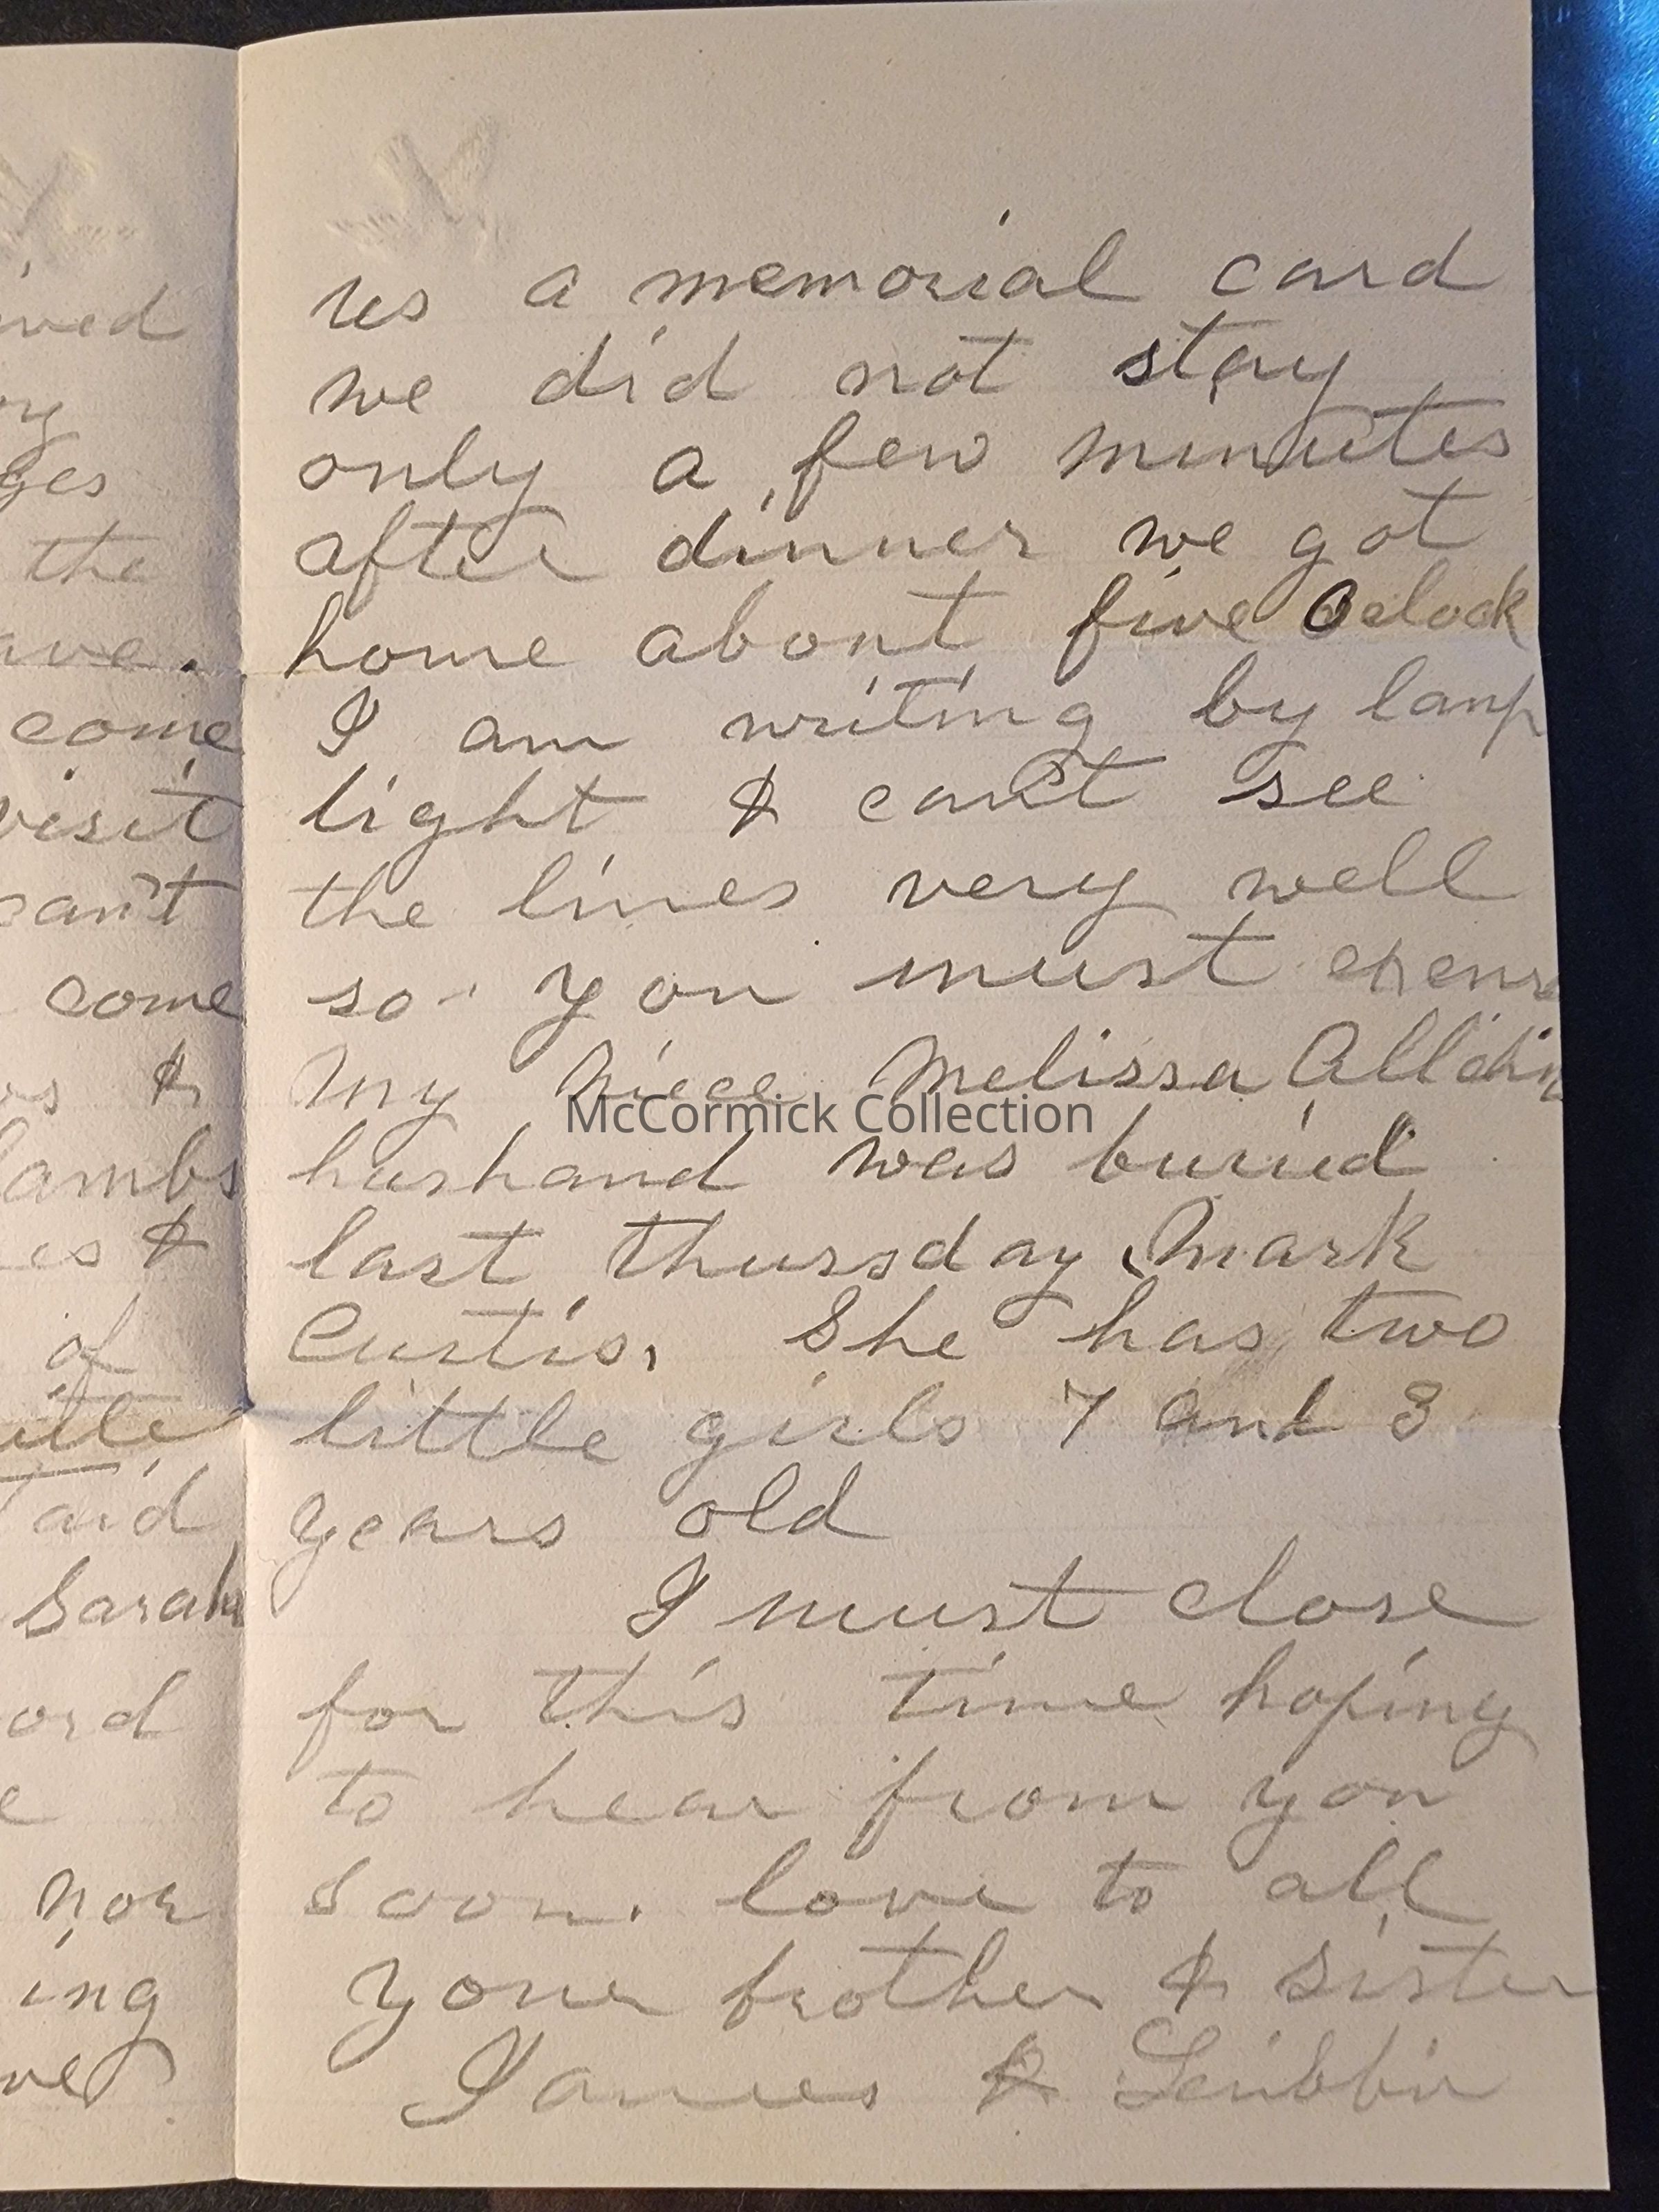 ived
ry
ges
the
ave.
come
visit
can't
come
rs &
lambs
es &
of
ittle
aid
Sarah
ord
e
nor
ing
ve
us a memorial card
we did not stay
only a few minutes
after dinner we got
home about five Oclock
I am writing by lamp
light & can't see
the lines very well
so you must
My Niece Melissa
McCormick Collection
husband was buried
last Thursday Mark
Curtis. She has two
little girls 7 and 3
years old
I must close
for this time hoping
to hear from you
soon. love to all
Your brother & sister
James &